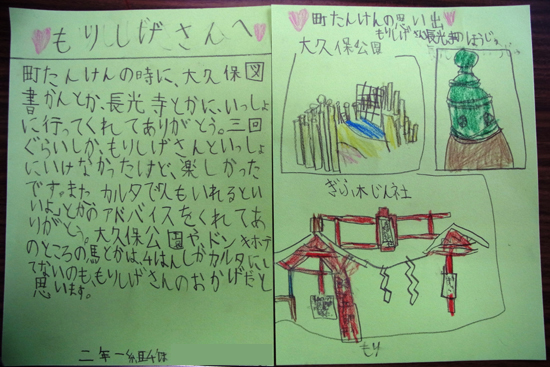 もりしげさんへ
町たんけんの時に、大久保図
書かんとか、長光寺とかに、いっしょ
に行ってくれてありがとう。三回
ぐらいしか、もりしげさんといっしょ
にいけなかったけど、楽しかった
です。また カルタで人もいれるとい
いよ」とかのアドバイスをくれてあ
りがとう。大久保公園や、ドンキホーテ
のところの馬とかは、4はんしかカルタにし
てないのも、もりしげさんのおかげだと
思います。
二年一組4はん
町たんけんの思い出
もりしげさん
大久保公園
長光寺のほうじゅ
神社
もり